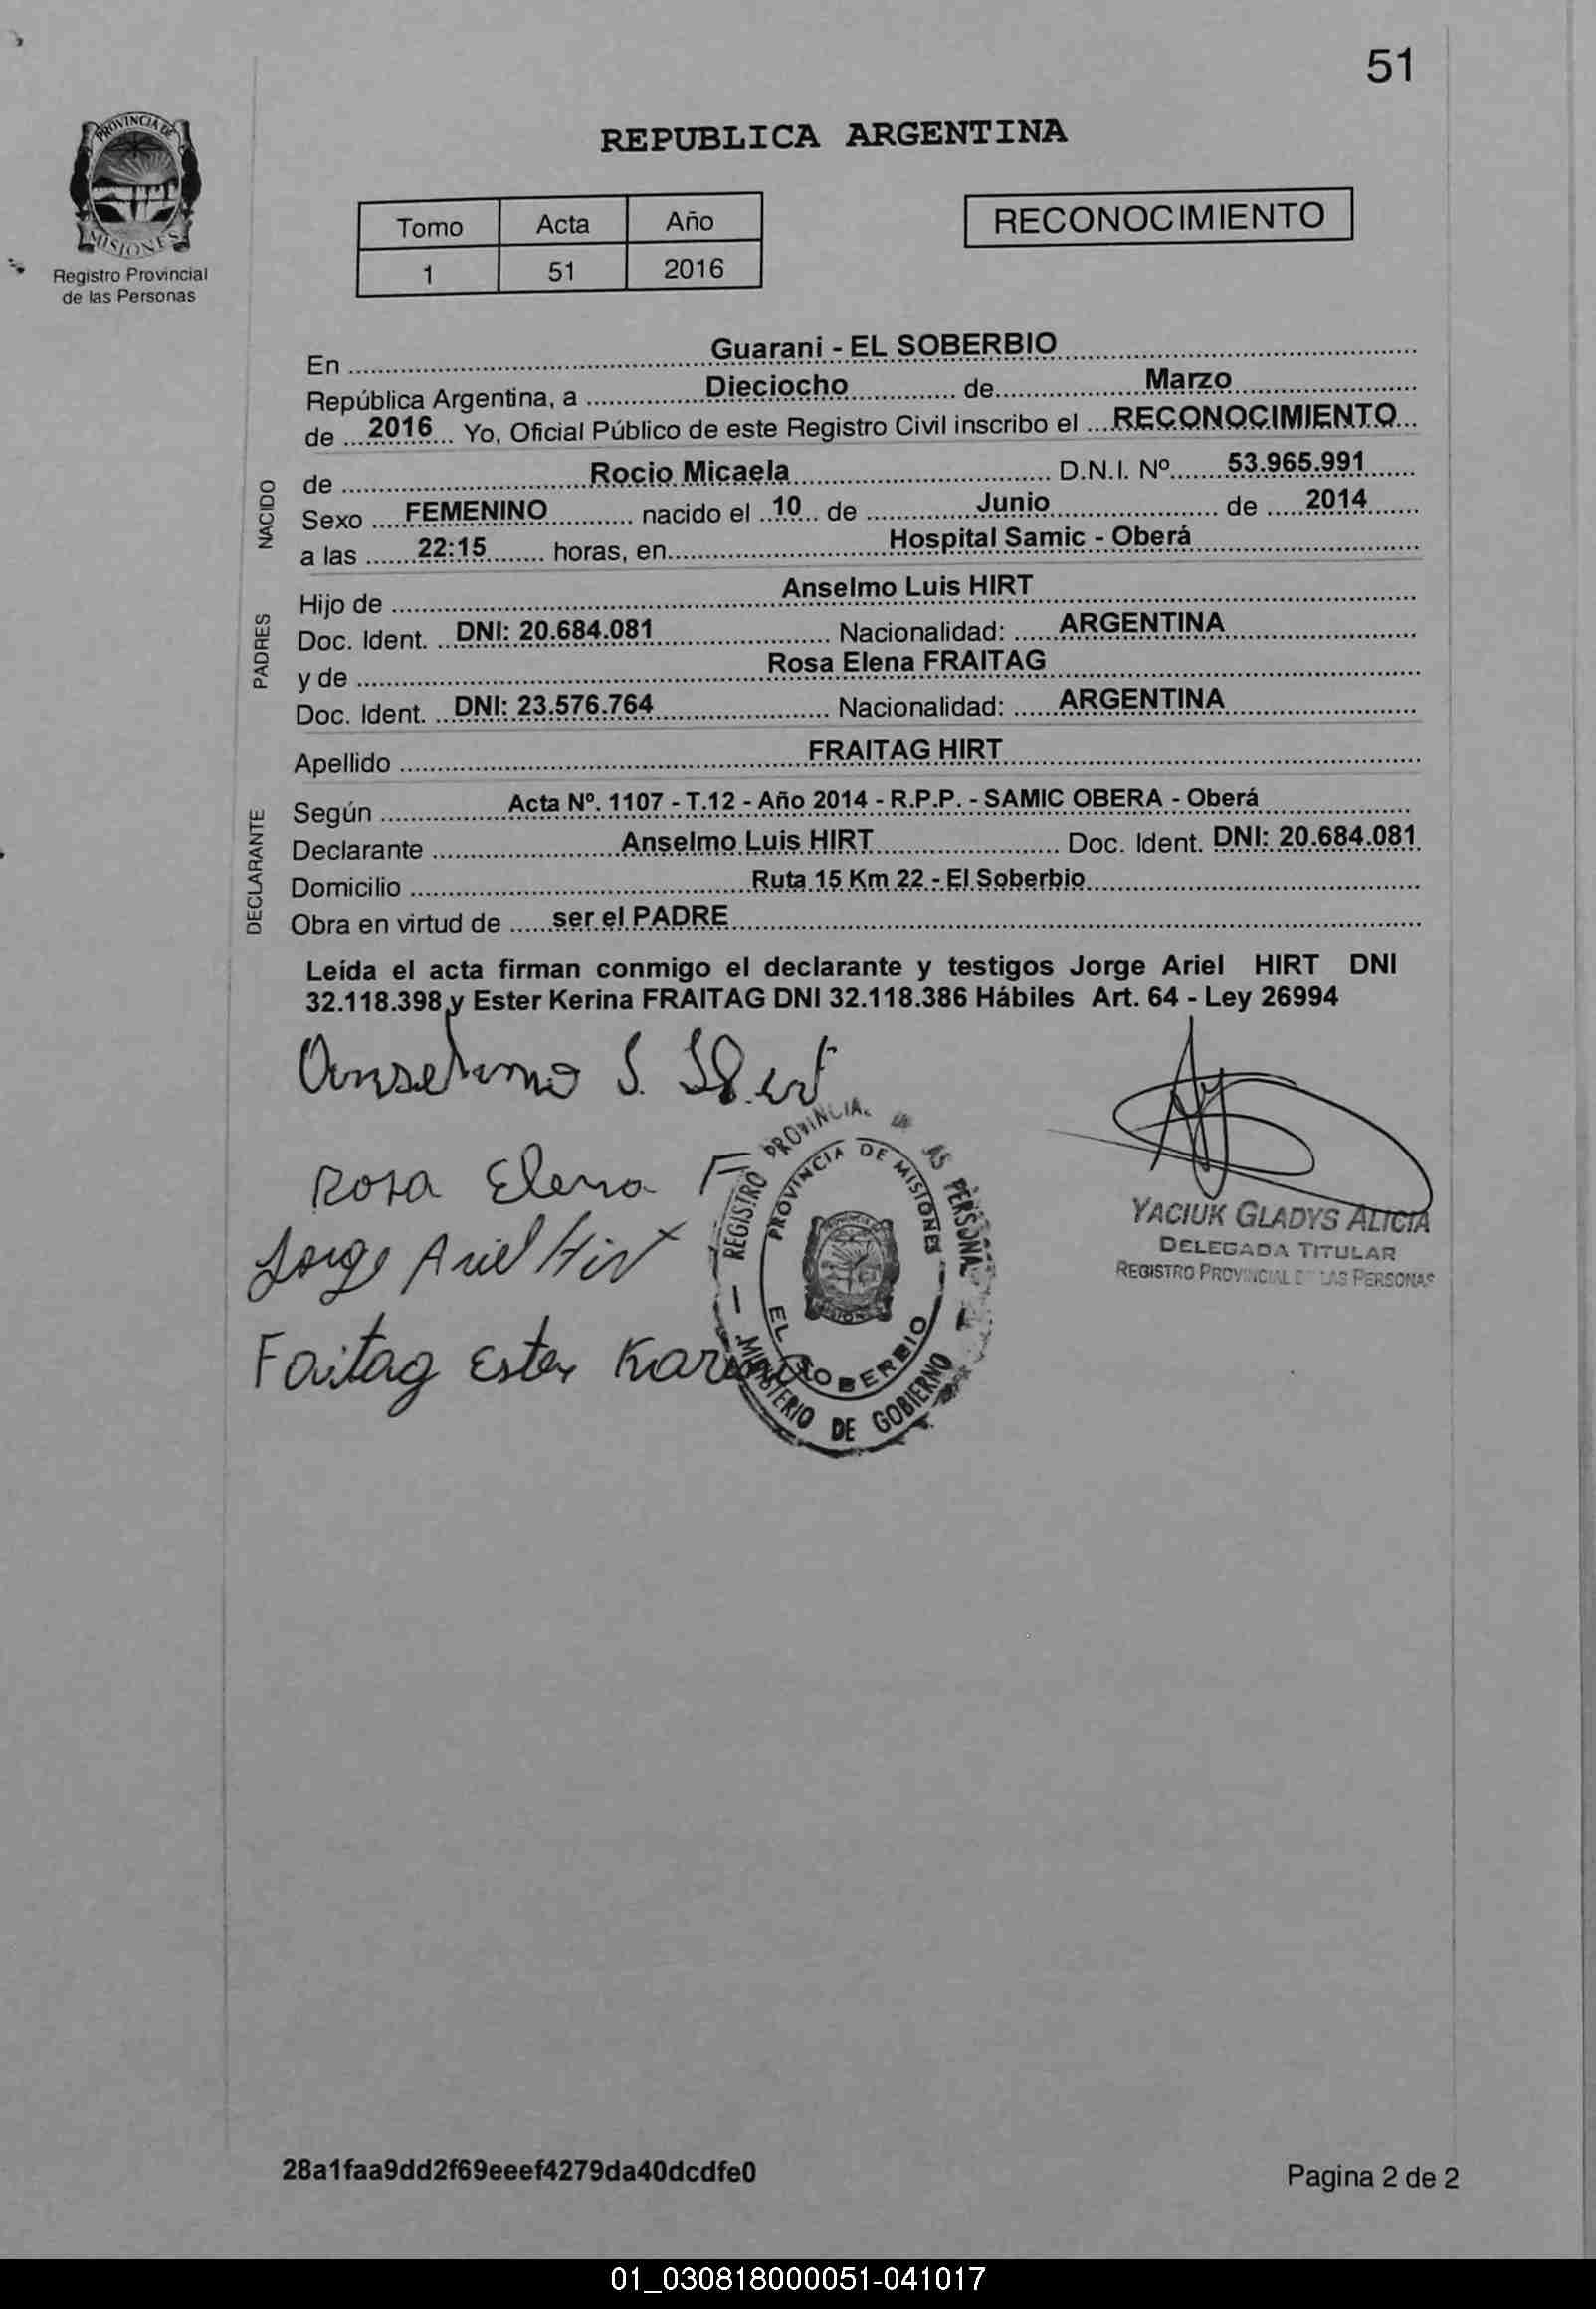 51
PROVINCIA DE
MISIONES
Registro Provincial
de las Personas
REPUBLICA ARGENTINA
Tomo Acta Año
1 51 2016
RECONOCIMIENTO
En Guarani - EL SOBERBIO
República Argentina, a Dieciocho de Marzo
de 2016 Yo, Oficial Público de este Registro Civil inscribo el RECONOCIMIENTO
NACIDO
de Rocio Micaela D.N.I. Nº 53.965.991
Sexo FEMENINO nacido el 10 de Junio de 2014
a las 22:15 horas, en Hospital Samic - Oberá
PADRES
Hijo de Anselmo Luis HIRT
Doc. Ident. DNI: 20.684.081 Nacionalidad: ARGENTINA
y de Rosa Elena FRAITAG
Doc. Ident. DNI: 23.576.764 Nacionalidad: ARGENTINA
Apellido FRAITAG HIRT
DECLARANTE
Según Acta Nº. 1107 - T.12 - Año 2014 - R.P.P. - SAMIC OBERA - Oberá
Declarante Anselmo Luis HIRT Doc. Ident. DNI: 20.684.081
Domicilio Ruta 15 Km 22 - El Soberbio
Obra en virtud de ser el PADRE
Leída el acta firman conmigo el declarante y testigos Jorge Ariel HIRT DNI
32.118.398 y Ester Kerina FRAITAG DNI 32.118.386 Hábiles Art. 64 - Ley 26994
Anselmo
Rosa Elena F
Jorge Ariel Hirt
Faitag Ester
REGISTRO PROVINCIAL PERSONAS
MINISTERIO DE GOBIERNO
PROVINCIA DE MISIONES
EL SOBERBIO
YACIUK GLADYS ALICIA
DELEGADA TITULAR
REGISTRO PROVINCIAL DE LAS PERSONAS
28a1faa9dd2f69eeef4279da40dcdfe0
Pagina 2 de 2
01_030818000051-041017